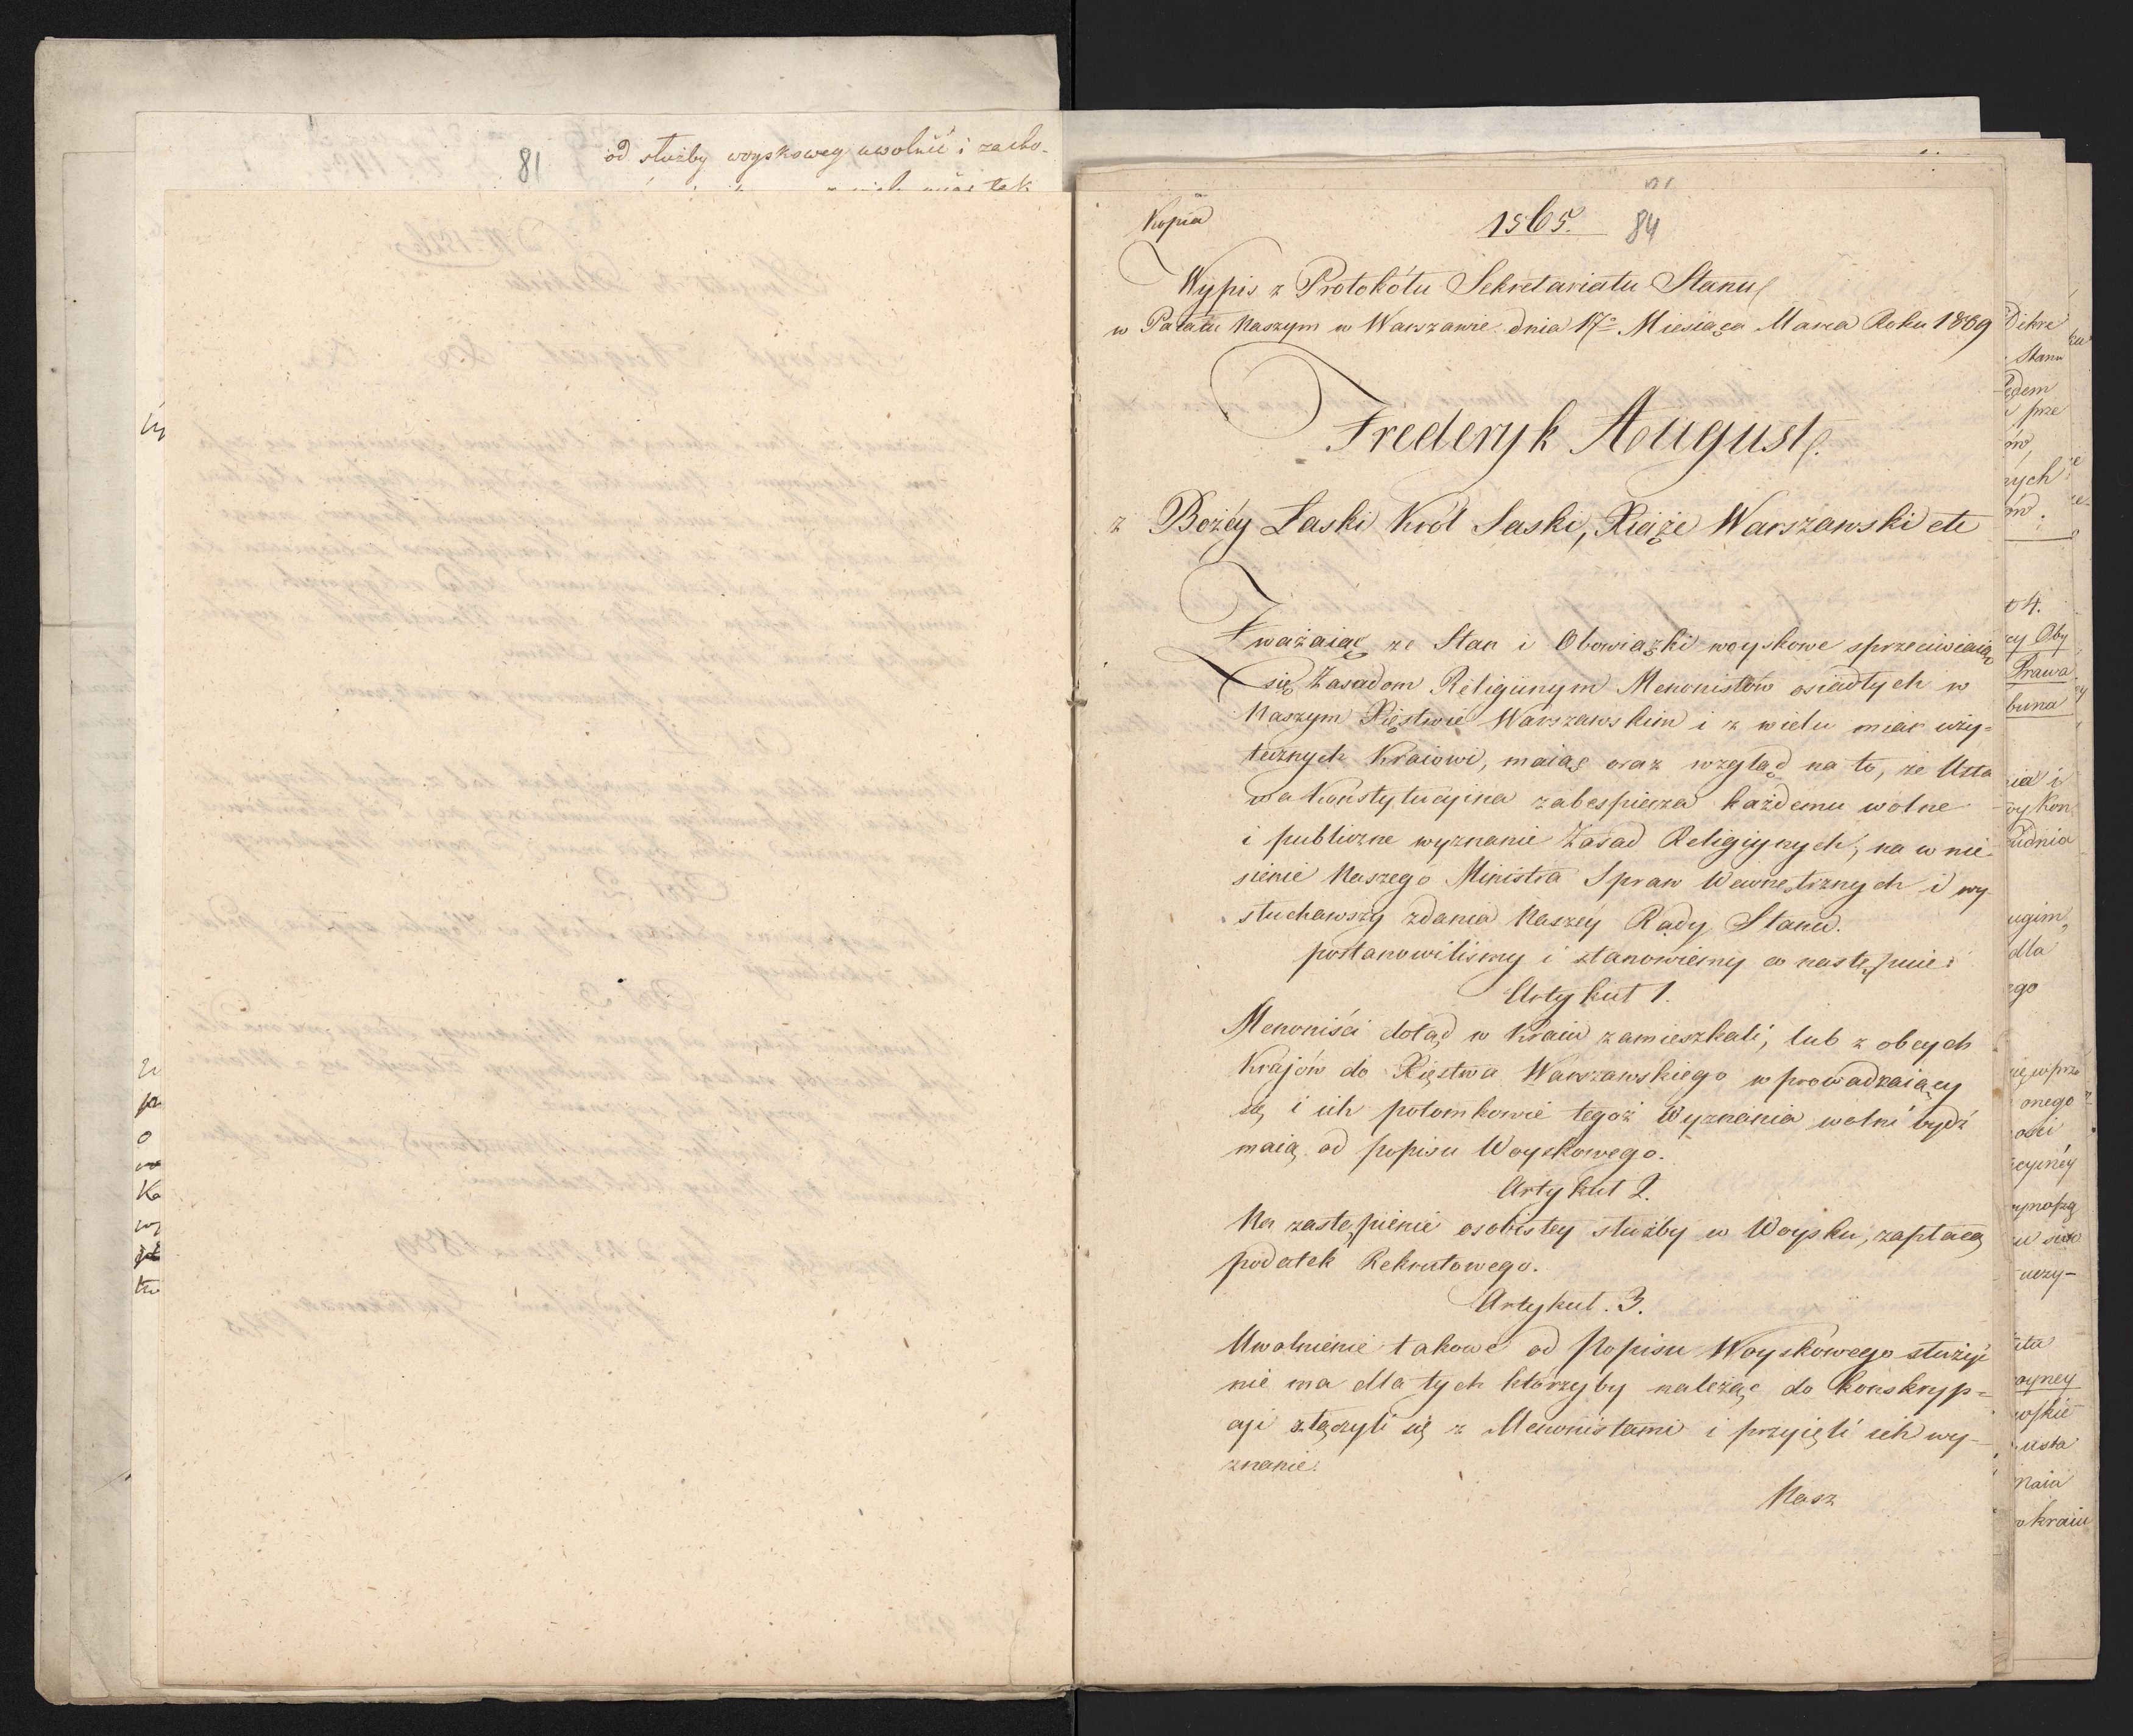 81
od służby woyskowey uwolnić i zacho-
Kopia
1565.
84
Wypis z Protokółu Sekretariatu Stanu
w Pałacu Naszym w Warszawie dnia 17º Miesiąca Marca Roku 1809
Frederyk August.
z Bożéy Łaski Król Saski, Xiąże Warszawski etc
Zważaiąc ze Stan i Obowiązki woyskowe sprzeciwiaią
się Zasadom Religiinym Menonistów osiadłych w
Naszym Xięstwie Warszawskim i z wielu miar uży-
tecznych Kraiowi, maiąc oraz wzgląd na to, że Usta
wa Konstytucyina zabespiecza każdemu wolne
i publiczne wyznanie Zasad Religiynych, na w nie
sienie Naszego Ministra Spraw Wewnętrznych i wy-
słuchawszy zdania Naszey Rady Stanu.
postanowiliśmy i stanowiemy co następuie:
Artykuł 1.
Menoniści dotąd w Kraiu zamieszkali, lub z obcych
Krajów do Xięstwa Warszawskiego wprowadzaiący
się, i ich potomkowie tegoż Wyznania wolni bydź
maią od popisu Woyskowego.
Artykuł 2.
Na zastępienie osobistey służby w Woysku, zapłacą
podatek Rekrutowego.
Artykuł. 3.
Uwolnienie takowe od Popisu Woyskowego służyć
nie ma dla tych którzyby należąc do konskryp=
cyi złączyli się z Menonistami i przyięli ich wy-
znanie.
Nasz
Stanu
Prawa
wykon
dla
onego
kraiu